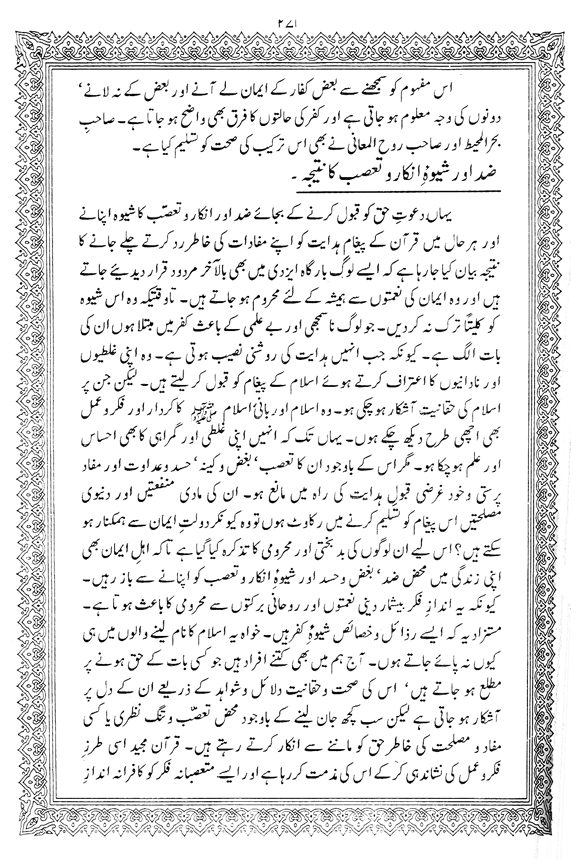 ۲۷۱
اس مفہوم کو سمجھنے سے بعض کفار کے ایمان لے آنے اور بعض کے نہ لانے،
دونوں کی وجہ معلوم ہو جاتی ہے اور کفر کی حالتوں کا فرق بھی واضح ہو جاتا ہے۔ صاحبِ
بحر المحیط اور صاحب روح المعانی نے بھی اس ترکیب کی صحت کو تسلیم کیا ہے۔
ضد اور شیوۂ انکار و تعصب کا نتیجہ۔
یہاں دعوتِ حق کو قبول کرنے کے بجائے ضد اور انکار و تعصّب کا شیوہ اپنانے
اور ہر حال میں قرآن کے پیغام ہدایت کو اپنے مفادات کی خاطر رد کرتے چلے جانے کا
نتیجہ بیان کیا جا رہا ہے کہ ایسے لوگ بارگاہ ایزدی میں بھی بالآخر مردود قرار دیدیئے جاتے
ہیں اور وہ ایمان کی نعمتوں سے ہمیشہ کے لئے محروم ہو جاتے ہیں۔ تاوقتیکہ وہ اس شیوہ
کو کلیتاً ترک نہ کر دیں۔ جو لوگ ناسمجھی اور بے علمی کے باعث کفر میں مبتلا ہوں ان کی
بات الگ ہے۔ کیونکہ جب انہیں ہدایت کی روشنی نصیب ہوتی ہے۔ وہ اپنی غلطیوں
اور نادانیوں کا اعتراف کرتے ہوئے اسلام کے پیغام کو قبول کر لیتے ہیں۔ لیکن جن پر
اسلام کی حقانیت آشکار ہو چکی ہو۔ وہ اسلام اور بانئ اسلام ﷺ کا کردار اور فکر و عمل
بھی اچھی طرح دیکھ چکے ہوں۔ یہاں تک کہ انہیں اپنی غلطی اور گمراہی کا بھی احساس
اور علم ہو چکا ہو۔ مگر اس کے باوجود ان کا تعصب، بغض و کینہ، حسد و عداوت اور مفاد
پرستی و خود غرضی قبولِ ہدایت کی راہ میں مانع ہو۔ ان کی مادی منفعتیں اور دنیوی
مصلحتیں اس پیغام کو تسلیم کرنے میں رکاوٹ ہوں تو وہ کیونکر دولتِ ایمان سے ہمکنار ہو
سکتے ہیں؟ اس لیے ان لوگوں کی بدبختی اور محرومی کا تذکرہ کیا گیا ہے تاکہ اہلِ ایمان بھی
اپنی زندگی میں محض ضد، بغض و حسد اور شیوۂ انکار و تعصب کو اپنانے سے باز رہیں۔
کیونکہ یہ اندازِ فکر بیشمار دینی نعمتوں اور روحانی برکتوں سے محرومی کا باعث ہوتا ہے۔
مستزاد یہ کہ ایسے رذائل و خصائص شیوۂ کفر ہیں۔ خواہ یہ اسلام کا نام لینے والوں میں ہی
کیوں نہ پائے جاتے ہوں۔ آج ہم میں بھی کتنے افراد ہیں جو کسی بات کے حق ہونے پر
مطلع ہو جاتے ہیں، اس کی صحت و حقانیت دلائل و شواہد کے ذریعے ان کے دل پر
آشکار ہو جاتی ہے لیکن سب کچھ جان لینے کے باوجود محض تعصّب و تنگ نظری یا کسی
مفاد و مصلحت کی خاطر حق کو ماننے سے انکار کرتے رہتے ہیں۔ قرآن مجید اسی طرزِ
فکر و عمل کی نشاندہی کر کے اس کی مذمت کر رہا ہے اور ایسے متعصبانہ فکر کو کافرانہ اندازِ